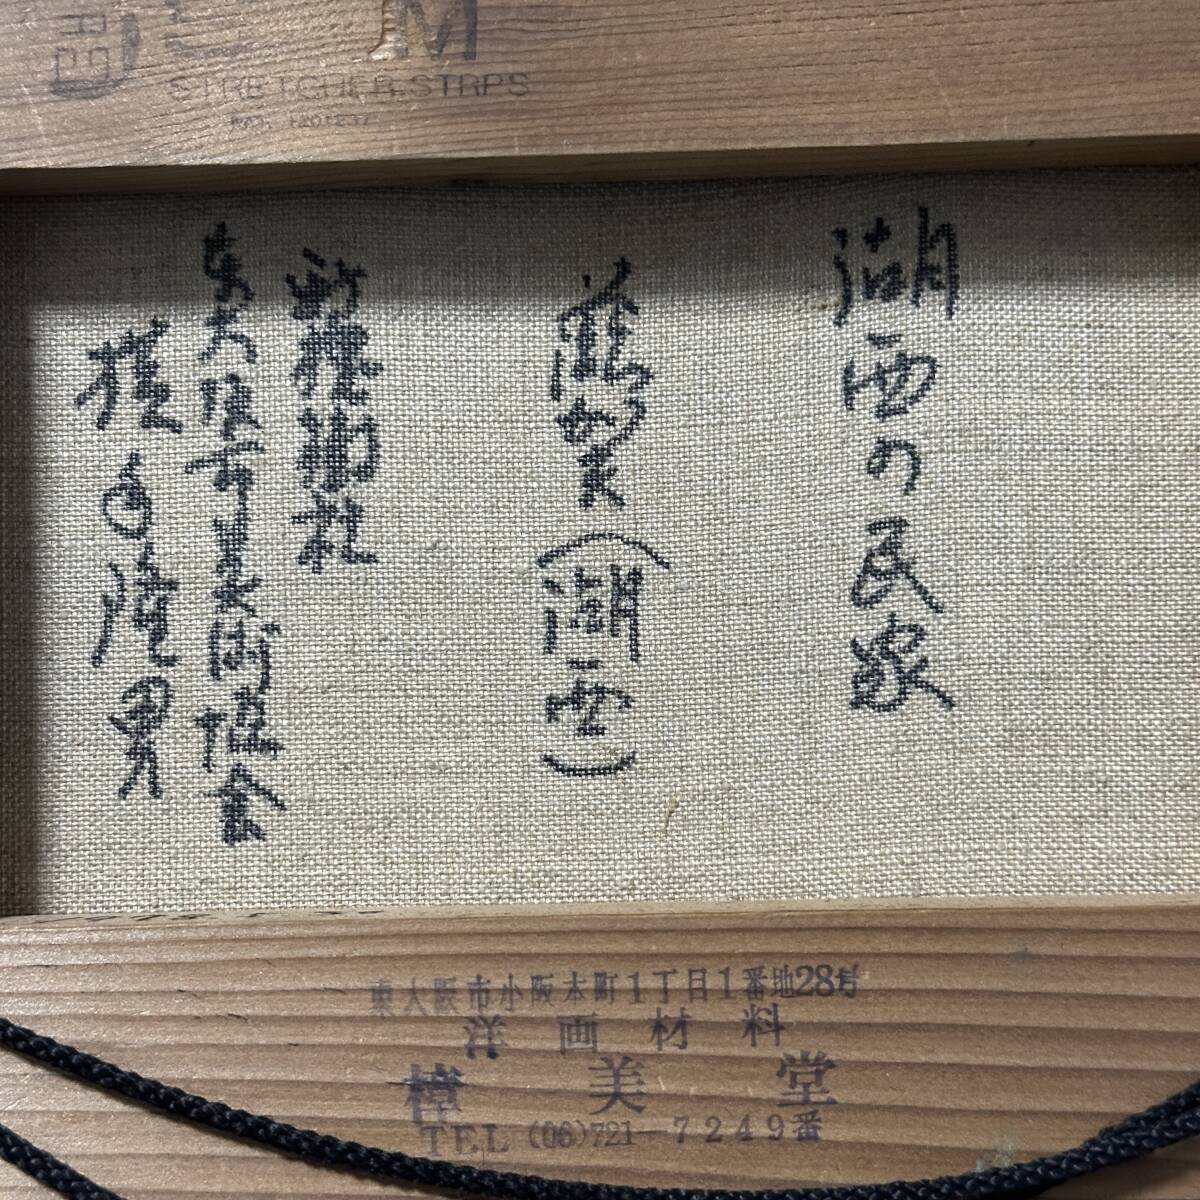 M
STRETCHER STRPS
湖西の民家
滋賀（湖西）
新極美術
東大阪市美術協会
隆男
東大阪市小阪本町1丁目1番地28号
洋画材料
樟美堂
TEL (06)721-7249番